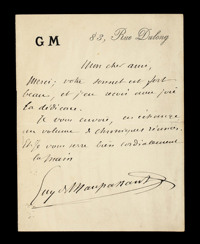 GM 83, Rue Dulong
Mon cher ami,
Merci; votre sonnet est fort
beau, et j'en avais
la dédicace.
Je vous envoie, en échange
un volume de chroniques réunies.
Je vous serre bien cordialement
la main
Guy de Maupassant